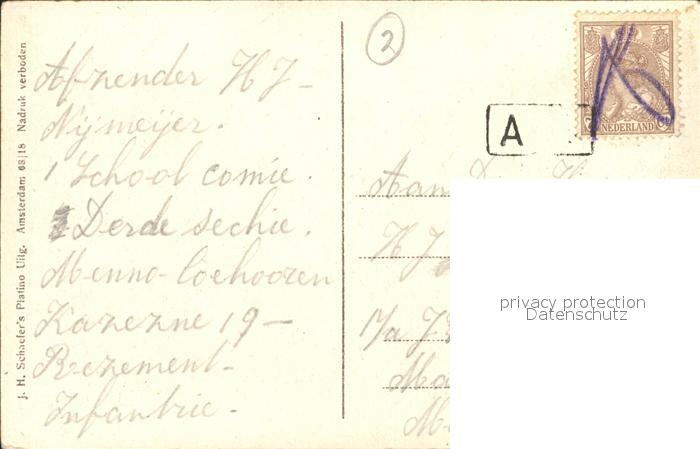 J. H. Schaefer's Platino Uitg. Amsterdam 68|18 Nadruk verboden
Afzender H J -
Nijmeijer.
1 School comie.
Derde sechie.
Menno-Coehooren
Kazezne 19 -
Rezement -
Infantrie -
2
A
NEDERLAND
Aan
H J
p/a J
Ma
M
privacy protection
Datenschutz